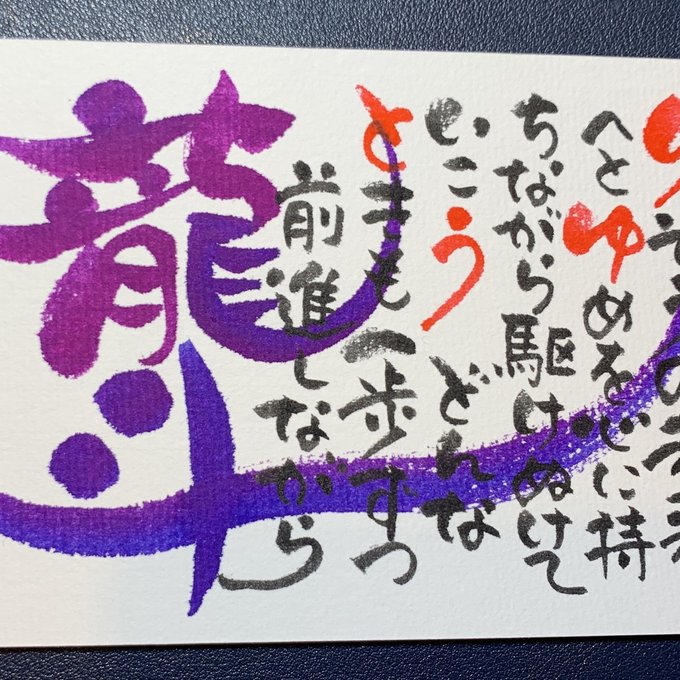 へとゆめを心に持
ちながら駆けぬけて
いこう どんな
ときも一歩ずつ
前進しながら
龍斗